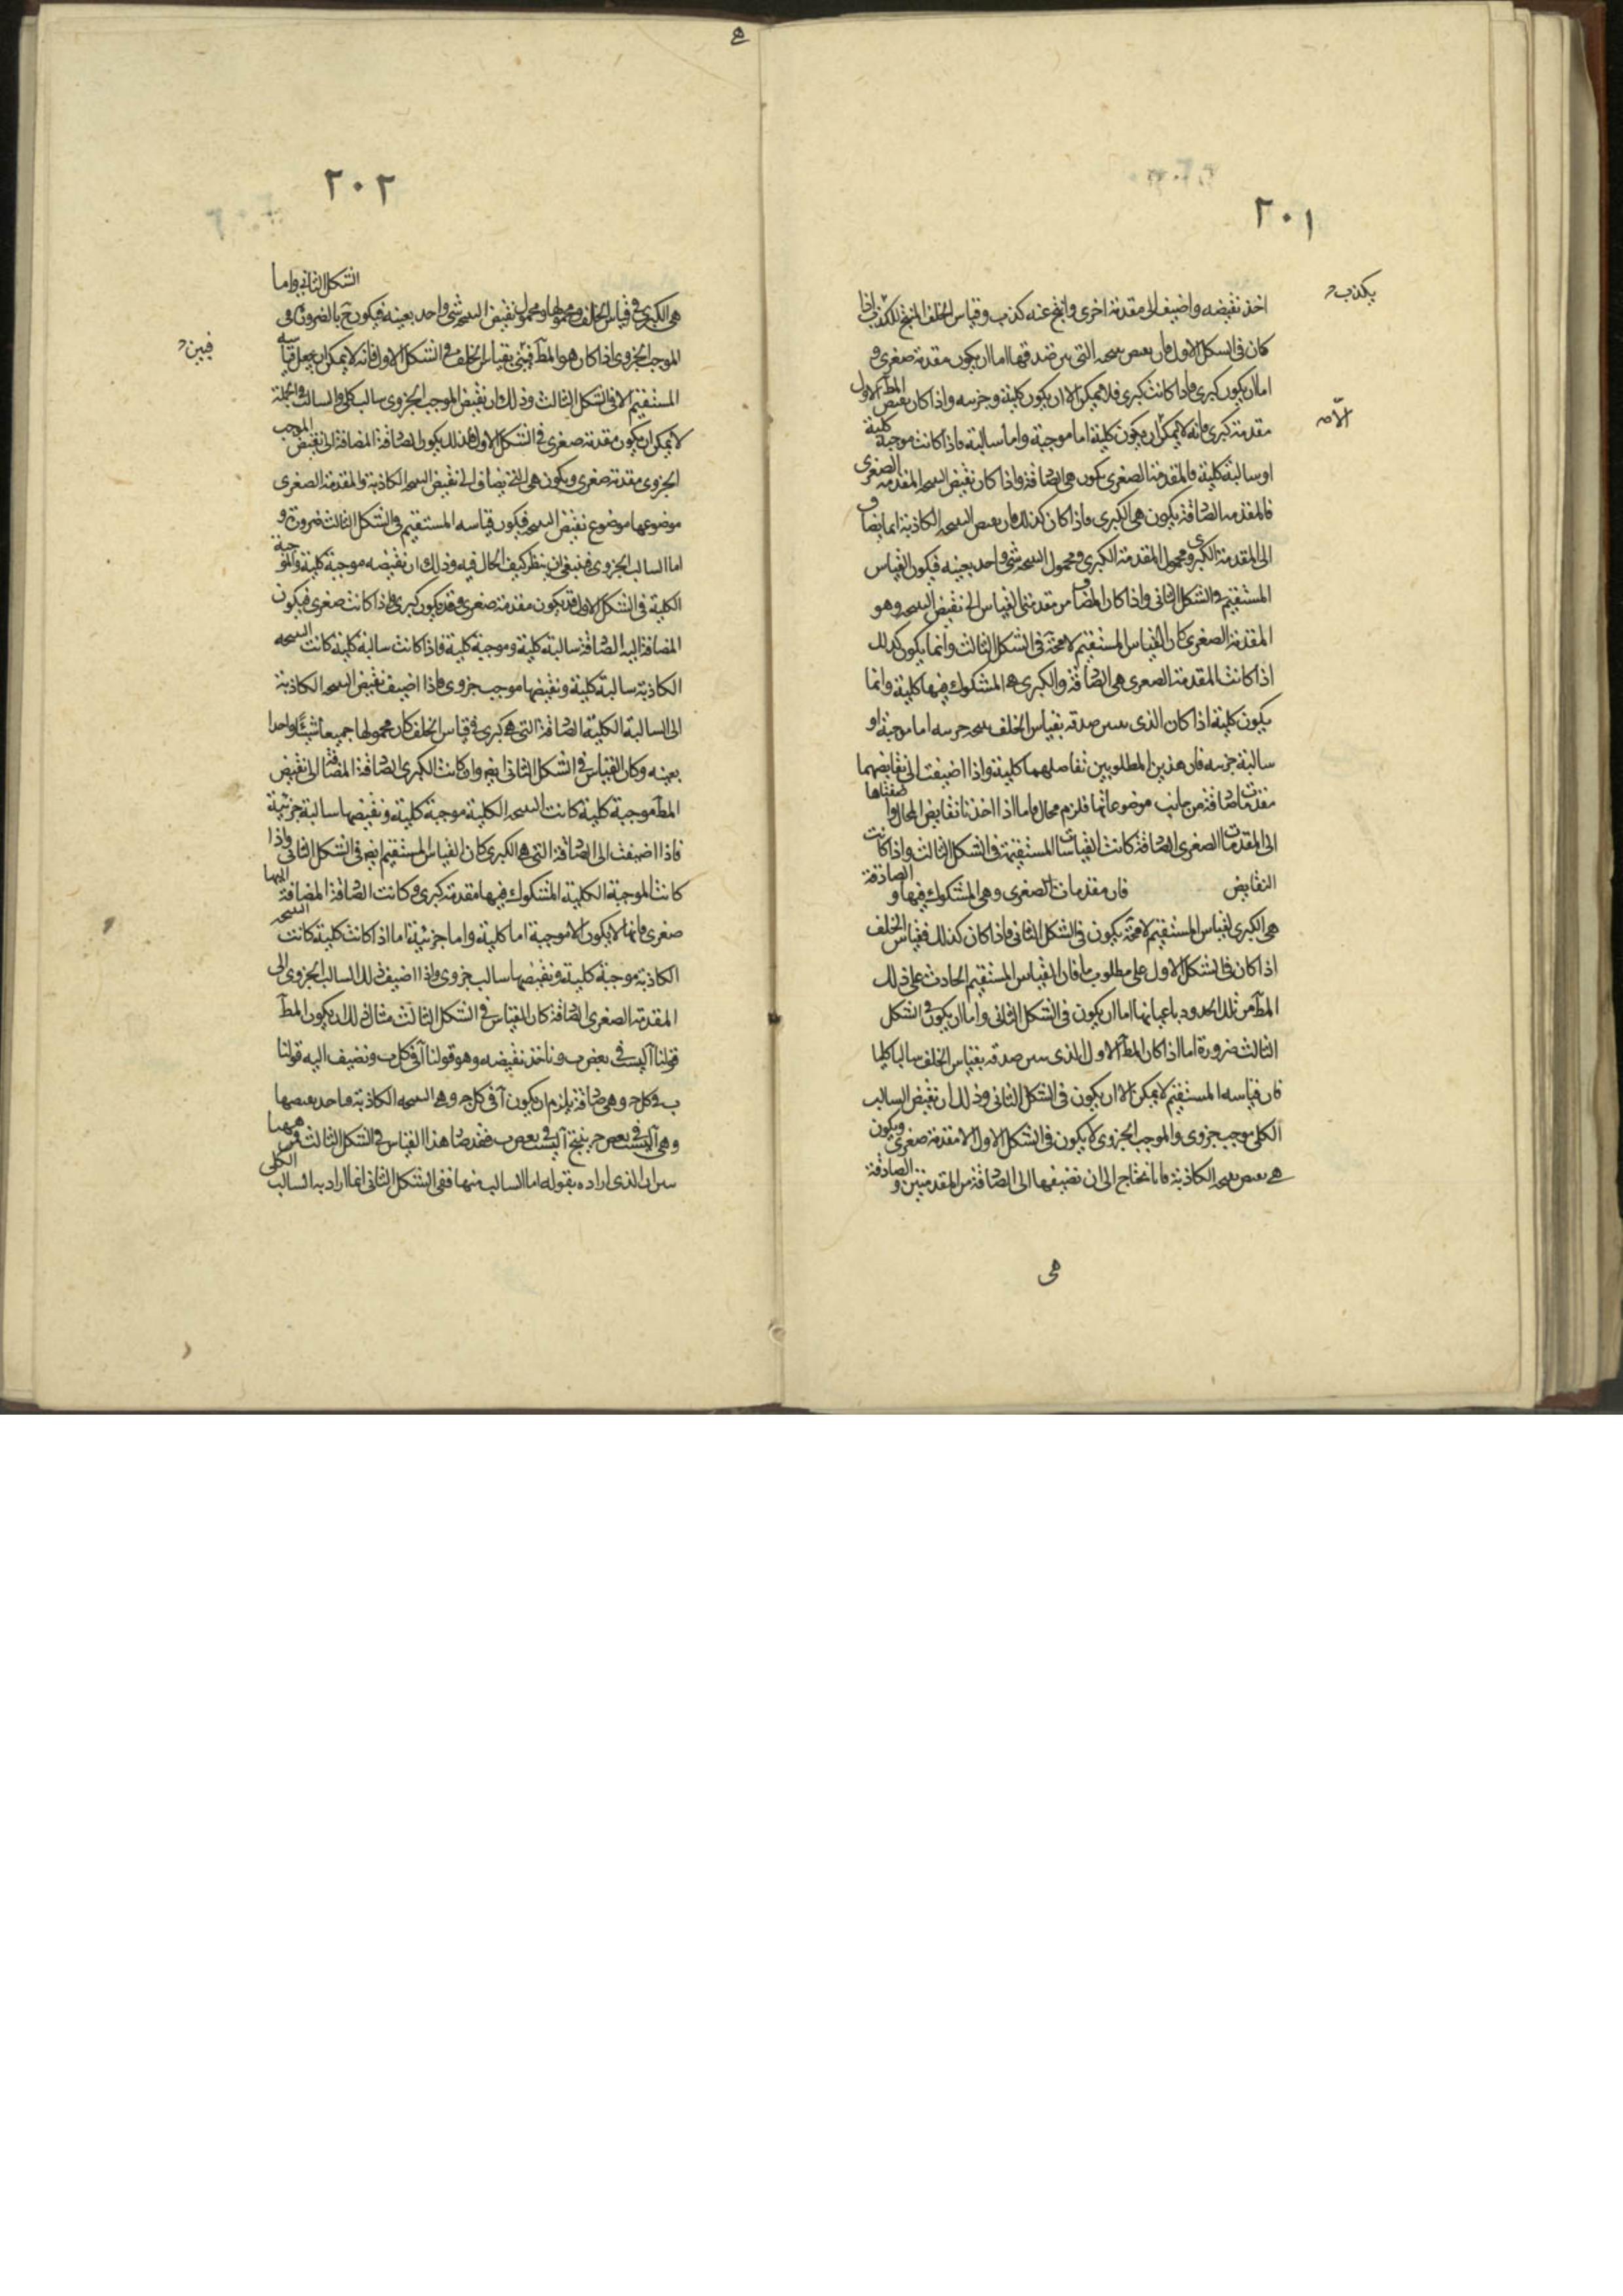 ٢٠١
يكذب
اخذ نقيضه واضيف الى مقدمة اخرى وانتج عنه كذب وقياس الخلف المنتج للكذب اذا
كان فى الشكل الاول فان نقيض نتيجته التى صدقها اما ان يكون مقدمة صغرى و
اما ان يكون كبرى فاذا كانت كبرى فلا يمكن الا ان يكون كلية وجزئيه واذا كان نقيض المط الاول
مقدمة كبرى فانه لا يمكن ان يكون كلية اما موجبة واما سالبة فاذا كانت موجبة كلية
او سالبة كلية فالمقدمة الصغرى يكون هى الصادقة واذا كان نقيض النتيجه المقدمه الصغرى
فالمقدمه الصادقة يكون هى الكبرى فاذا كان كذلك فان نقيض النتيجه الكاذبة انما يضاف
الى المقدمة الكبرى ومحمول المقدمة الكبرى ومحمول النتيجه شئ واحد بعينه فيكون القياس
المستقيم فى الشكل الثانى واذا كان المضاف من مقدمتى القياس الى نقيض النتيجه وهو
المقدمة الصغرى كان القياس المستقيم لا محة فى الشكل الثالث وانما يكون كذلك
اذا كانت المقدمة الصغرى هى الصادقة والكبرى هى المشكوك فيها كلية وانما
يكون كلية اذا كان الذى صدقه بقياس الخلف نتيجه جزئيه اما موجبة او
سالبة جزئيه فان هذين المطلوبين تقابلهما كلية واذا اضيفت الى نقايضهما
مقدمات صادقة من جانب موضوعاتها فلزم محال واما اذا اخذنا نقايض المحال واضفناها
الى المقدمات الصغرى الصادقة كانت القياسات المستقيمة فى الشكل الثالث واذا كانت
النقايض فان مقدمات الصغرى وهى المشكوك فيها و الصادقة
هى الكبرى لقياس المستقيم لا محة يكون فى الشكل الثانى فاذا كان كذلك فقياس الخلف
اذا كان فى الشكل الاول على مطلوب ما فان القياس المستقيم الحادث على ذلك
المط من تلك الحدود باعيانها اما ان يكون فى الشكل الثانى واما ان يكون فى الشكل
الثالث ضرورة اما اذا كان المط الاول الذى صدقه بقياس الخلف سالبا كليا
فان قياسه المستقيم لا يمكن الا ان يكون فى الشكل الثانى وذلك ان نقيض السالب
الكلى موجب جزوى والموجب الجزوى لا يكون فى الشكل الاول الا مقدمة صغرى ويكون
هى نقيض نتيجه الكاذبة فانا نحتاج الى ان نضيفها الى الصادقة من المقدمتين و الصادقة
هى
٢٠٢
الشكل الثانى واما
هى الكبرى فى قياس الخلف ومحمولها ومحمول نقيض النتيجه شئ واحد بعينه فيكون ح بالضرورة فى
فيبين
الموجب الجزوى اذا كان هو المط فبين بقياس الخلف فى الشكل الاول فانه لا يمكن ان يجعل قياسه
المستقيم الا فى الشكل الثالث وذلك ان نقيض الموجب الجزوى سالب كلى والسالب فى الجملة
لا يمكن ان يكون مقدمة صغرى فى الشكل الاول فلذلك يكون الصادقة المضافة الى نقيض الموجب
الجزوى مقدمة صغرى ويكون هى التى تضاف الى نقيض النتيجه الكاذبة والمقدمة الصغرى
موضوعها موضوع نقيض النتيجه فيكون قياسه المستقيم فى الشكل الثالث ضرورة و
اما السالب الجزوى فينبغى ان ينظر كيف الحال فيه وذلك ان نقيضه موجبة كلية والموجبة
الكلية فى الشكل الاول قد يكون مقدمة صغرى وقد يكون كبرى فاذا كانت صغرى فيكون
المضافة اليه الصادقة سالبة كلية وموجبة كلية فاذا كانت سالبة كلية كانت النتيجه
الكاذبة سالبة كلية ونقيضها موجب جزوى فاذا اضيف نقيض النتيجه الكاذبة
الى السالبة الكلية الصادقة التى هى كبرى فى قياس الخلف كان محمولها جميعا شيئا واحدا
بعينه وكان القياس فى الشكل الثانى ايضا وان كانت الكبرى الصادقة المضافة الى نقيض
المط موجبة كلية كانت النتيجه الكلية موجبة كلية ونقيضها سالبة جزئية
فاذا اضيفت الى الصادقة التى هى الكبرى كان القياس المستقيم ايضا فى الشكل الثانى واذا
كانت الموجبة الكلية المشكوك فيها مقدمة كبرى وكانت الصادقة المضافة اليها
صغرى فانها لا يكون الا موجبة اما كلية واما جزئية اما اذا كانت كلية كانت النتيجه
الكاذبة موجبة كلية ونقيضها سالب جزوى واذا اضيف ذلك السالب الجزوى الى
المقدمة الصغرى الصادقة كان القياس فى الشكل الثالث مثال ذلك ان يكون المط
قولنا آ ليست فى بعض ب وناخذ نقيضه وهو قولنا آ فى كل ب ونضيف اليه قولنا
ب فى كل ج وهى صادقة يلزم ان يكون آ فى كل ج وهى النتيجه الكاذبة فناخذ نقيضها
وهى آ ليست فى بعض ج ينتج آ ليست فى بعض ب فقد صار هذا القياس فى الشكل الثالث فمن ههنا
ان الذى اراده بقوله اما السالب منها ففى الشكل الثانى انما اراد به السالب الكلى